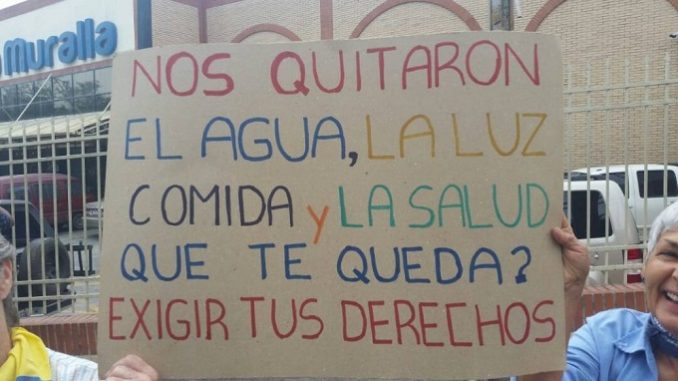 Muralla
NOS QUITARON
EL AGUA, LA LUZ
COMIDA y LA SALUD
QUE TE QUEDA?
EXIGIR TUS DERECHOS